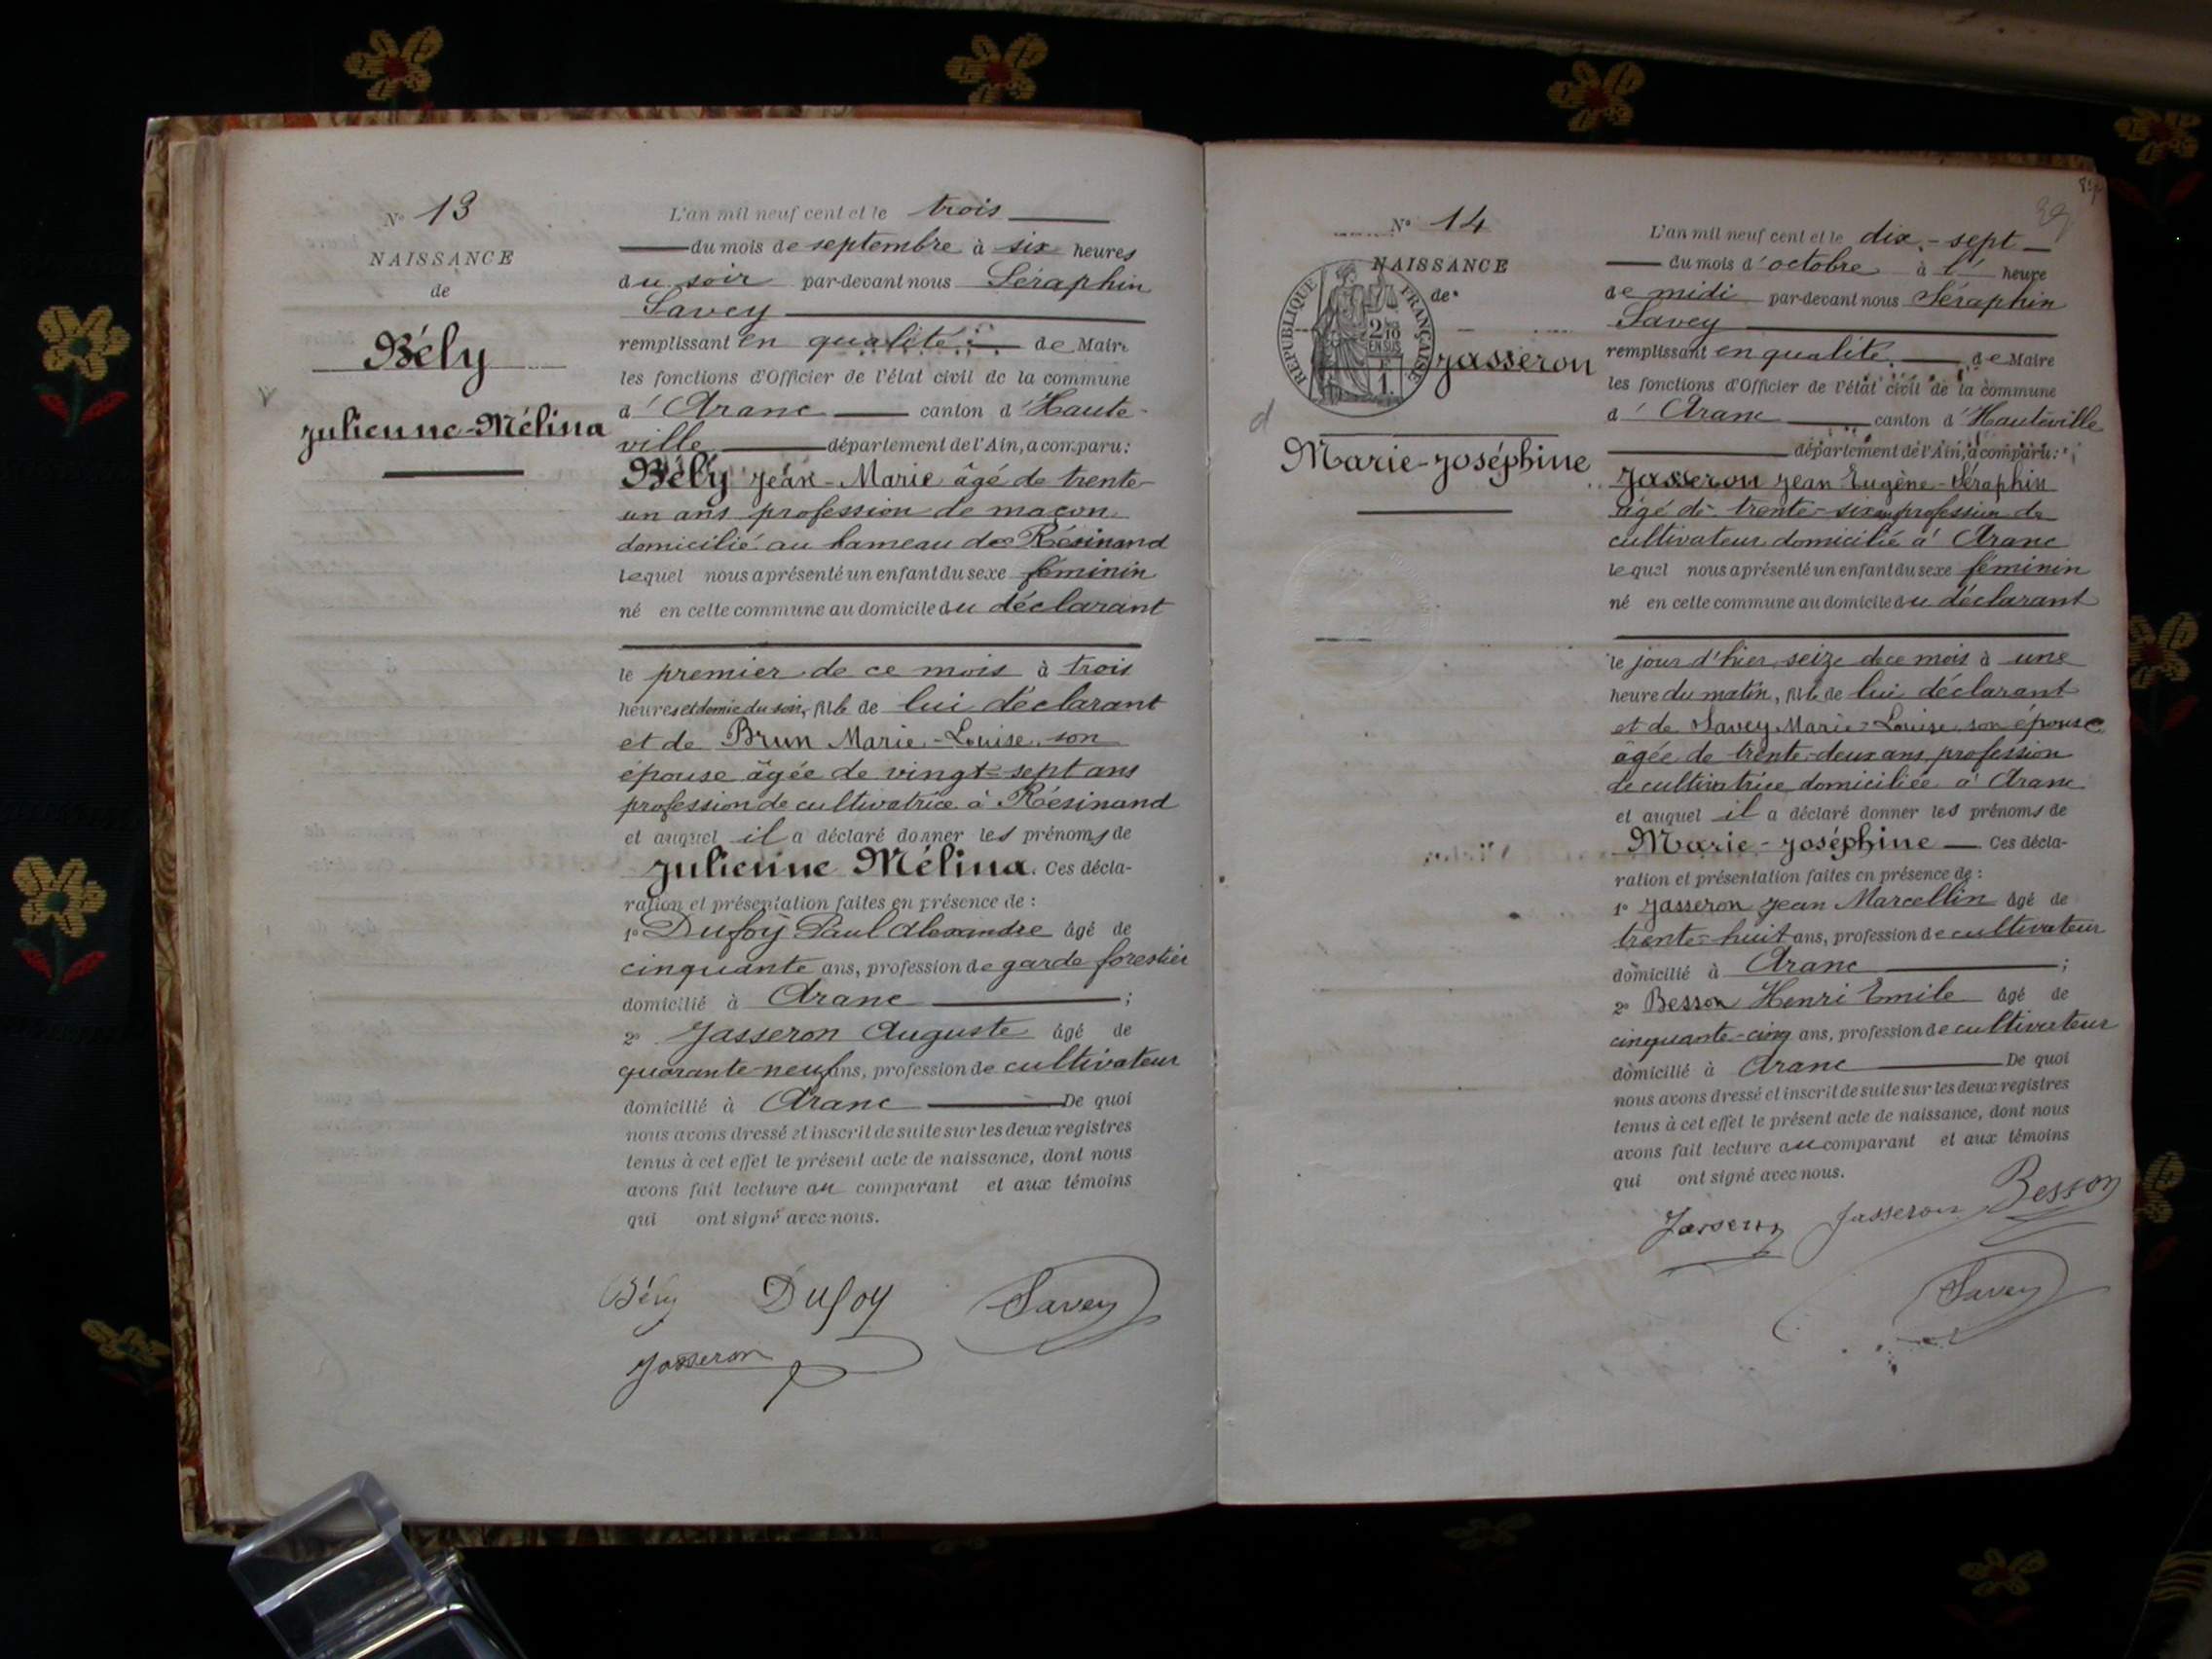 N° 13
NAISSANCE
de
Bély
Julienne-Mélina
L'an mil neuf cent et le trois
du mois de septembre à six heures
du soir par-devant nous Séraphin
Savey
remplissant en qualité de Maire
les fonctions d'Officier de l'état civil de la commune
d'Aranc canton d'Haute-
ville département de l'Ain, a comparu:
Bély Jean-Marie âgé de trente-
un ans profession de maçon
domicilié au hameau de Résinand
lequel nous a présenté un enfant du sexe féminin
né en cette commune au domicile du déclarant
le premier de ce mois à trois
heures et demie du soir, fille de lui déclarant
et de Brun Marie-Louise son
épouse âgée de vingt-sept ans
profession de cultivatrice à Résinand
et auquel il a déclaré donner les prénoms de
Julienne Mélina. Ces décla-
ration et présentation faites en présence de :
1° Dufoÿ Paul Alexandre âgé de
cinquante ans, profession de garde forestier
domicilié à Aranc ;
2° Jasseron Auguste âgé de
quarante-neuf ans, profession de cultivateur
domicilié à Aranc De quoi
nous avons dressé et inscrit de suite sur les deux registres
tenus à cet effet le présent acte de naissance, dont nous
avons fait lecture au comparant et aux témoins
qui ont signé avec nous.
Bély Dufoy Savey
Jasseron
N° 14
NAISSANCE
de
RÉPUBLIQUE FRANÇAISE
2/10
EN SUS
F
1
Jasseron
Marie-Joséphine
L'an mil neuf cent et le dix-sept
du mois d'octobre à l' heure
de midi par-devant nous Séraphin
Savey
remplissant en qualité de Maire
les fonctions d'Officier de l'état civil de la commune
d'Aranc canton d'Hauteville
département de l'Ain, a comparu:
Jasseron Jean Eugène-Séraphin
âgé de trente-six ans profession de
cultivateur domicilié à Aranc
lequel nous a présenté un enfant du sexe féminin
né en cette commune au domicile du déclarant
le jour d'hier, seize de ce mois à une
heure du matin, fille de lui déclarant
et de Savey Marie-Louise son épouse
âgée de trente-deux ans, profession
de cultivatrice domiciliée à Aranc
et auquel il a déclaré donner les prénoms de
Marie-Joséphine Ces décla-
ration et présentation faites en présence de :
1° Jasseron Jean Marcellin âgé de
trente-huit ans, profession de cultivateur
domicilié à Aranc ;
2° Besson Henri Emile âgé de
cinquante-cinq ans, profession de cultivateur
domicilié à Aranc De quoi
nous avons dressé et inscrit de suite sur les deux registres
tenus à cet effet le présent acte de naissance, dont nous
avons fait lecture au comparant et aux témoins
qui ont signé avec nous.
Jasseron Jasseron Besson
Savey